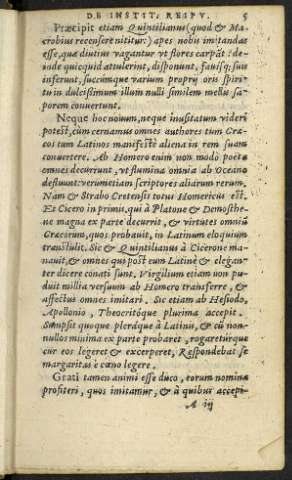 DE INSTIT. RESPV. 5
Præcipit etiam Quintilianus (quod & Ma-
crobius recensere nititur) apes nobis imitandas
esse, quæ diutius vagantur vt flores carpāt: de-
inde quicquid attulerint, disponunt, fauisq́; suis
inferunt, succumque varium proprij oris spiri-
tu in dulcissimum illum nulli similem mellis sa-
porem conuertunt.
Neque hoc nouum, neque inusitatum videri
potest, cùm cernamus omnes authores tum Græ-
cos tum Latinos manifestè aliena in rem suam
conuertere. Ab Homero enim non modò poetæ
omnes decurrunt, vt flumina omnia ab Oceano
defluunt: verumetiam scriptores aliarum rerum.
Nam & Strabo Cretensis totus Homericus est.
Et Cicero in primis, qui à Platone & Demosthe-
ne magna ex parte decurrit, & virtutes omnium
Græcorum, quos probauit, in Latinum eloquium
transtulit. Sic & Quintilianus à Cicerone ma-
nauit, & omnes qui post eum Latinè & elegan-
ter dicere conati sunt. Virgilium etiam non pu-
duit millia versuum ab Homero transferre, &
affectus omnes imitari. Sic etiam ab Hesiodo,
Apollonio, Theocritóque plurima accepit.
Sumpsit quoque pleráque à Latinis, & cū non-
nullos minima ex parte probaret, rogareturque
cur eos legeret & excerperet, Respondebat se
margaritas è cœno legere.
Grati tamen animi esse duco, eorum nomina
profiteri, quos imitamur, & à quibus accepi-
A iij